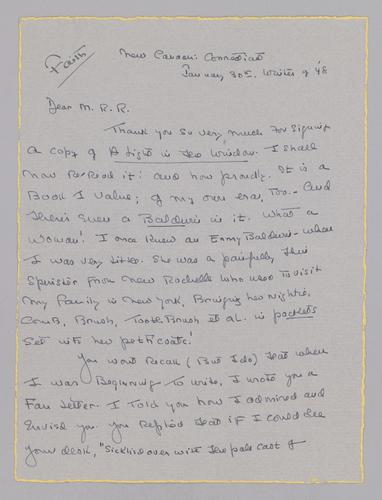 Faith
New Canaan: Connecticut
January 30th. Winter of '48
Dear M. R. R.
Thank you so very much for signing
a copy of A Light in the Window. I shall
now re-read it: and how proudly. It is a
Book I value; of my own era, too. And
there's even a Baldwin in it. What a
woman! I once knew an Emmy Baldwin - when
I was very little. She was a painfully thin
Spinster from New Rochelle who used to visit
my family in New York, Bringing her nightie,
Comb, Brush, Tooth Brush et al. in pockets
set with her petticoats!
You wont Recall (But I do) that when
I was Beginning to write, I wrote you a
Fan letter. I told you how I admired and
envied you. You Replied that if I could see
your desk, "Sicklied over with the pale cast of